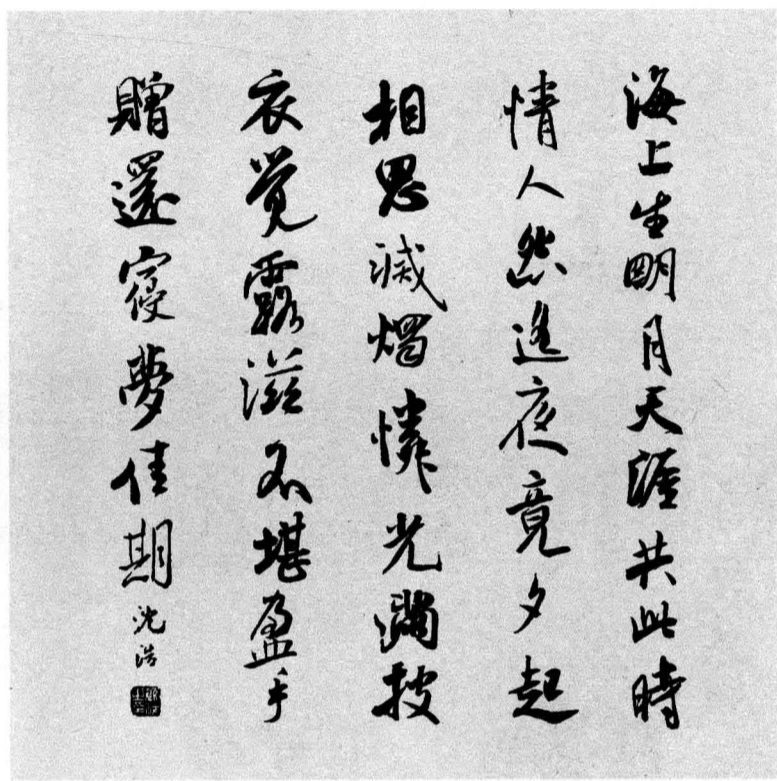 海上生明月天涯共此時
情人怨遙夜竟夕起
相思滅燭憐光滿披
衣覺露滋不堪盈手
贈還寢夢佳期沈浩